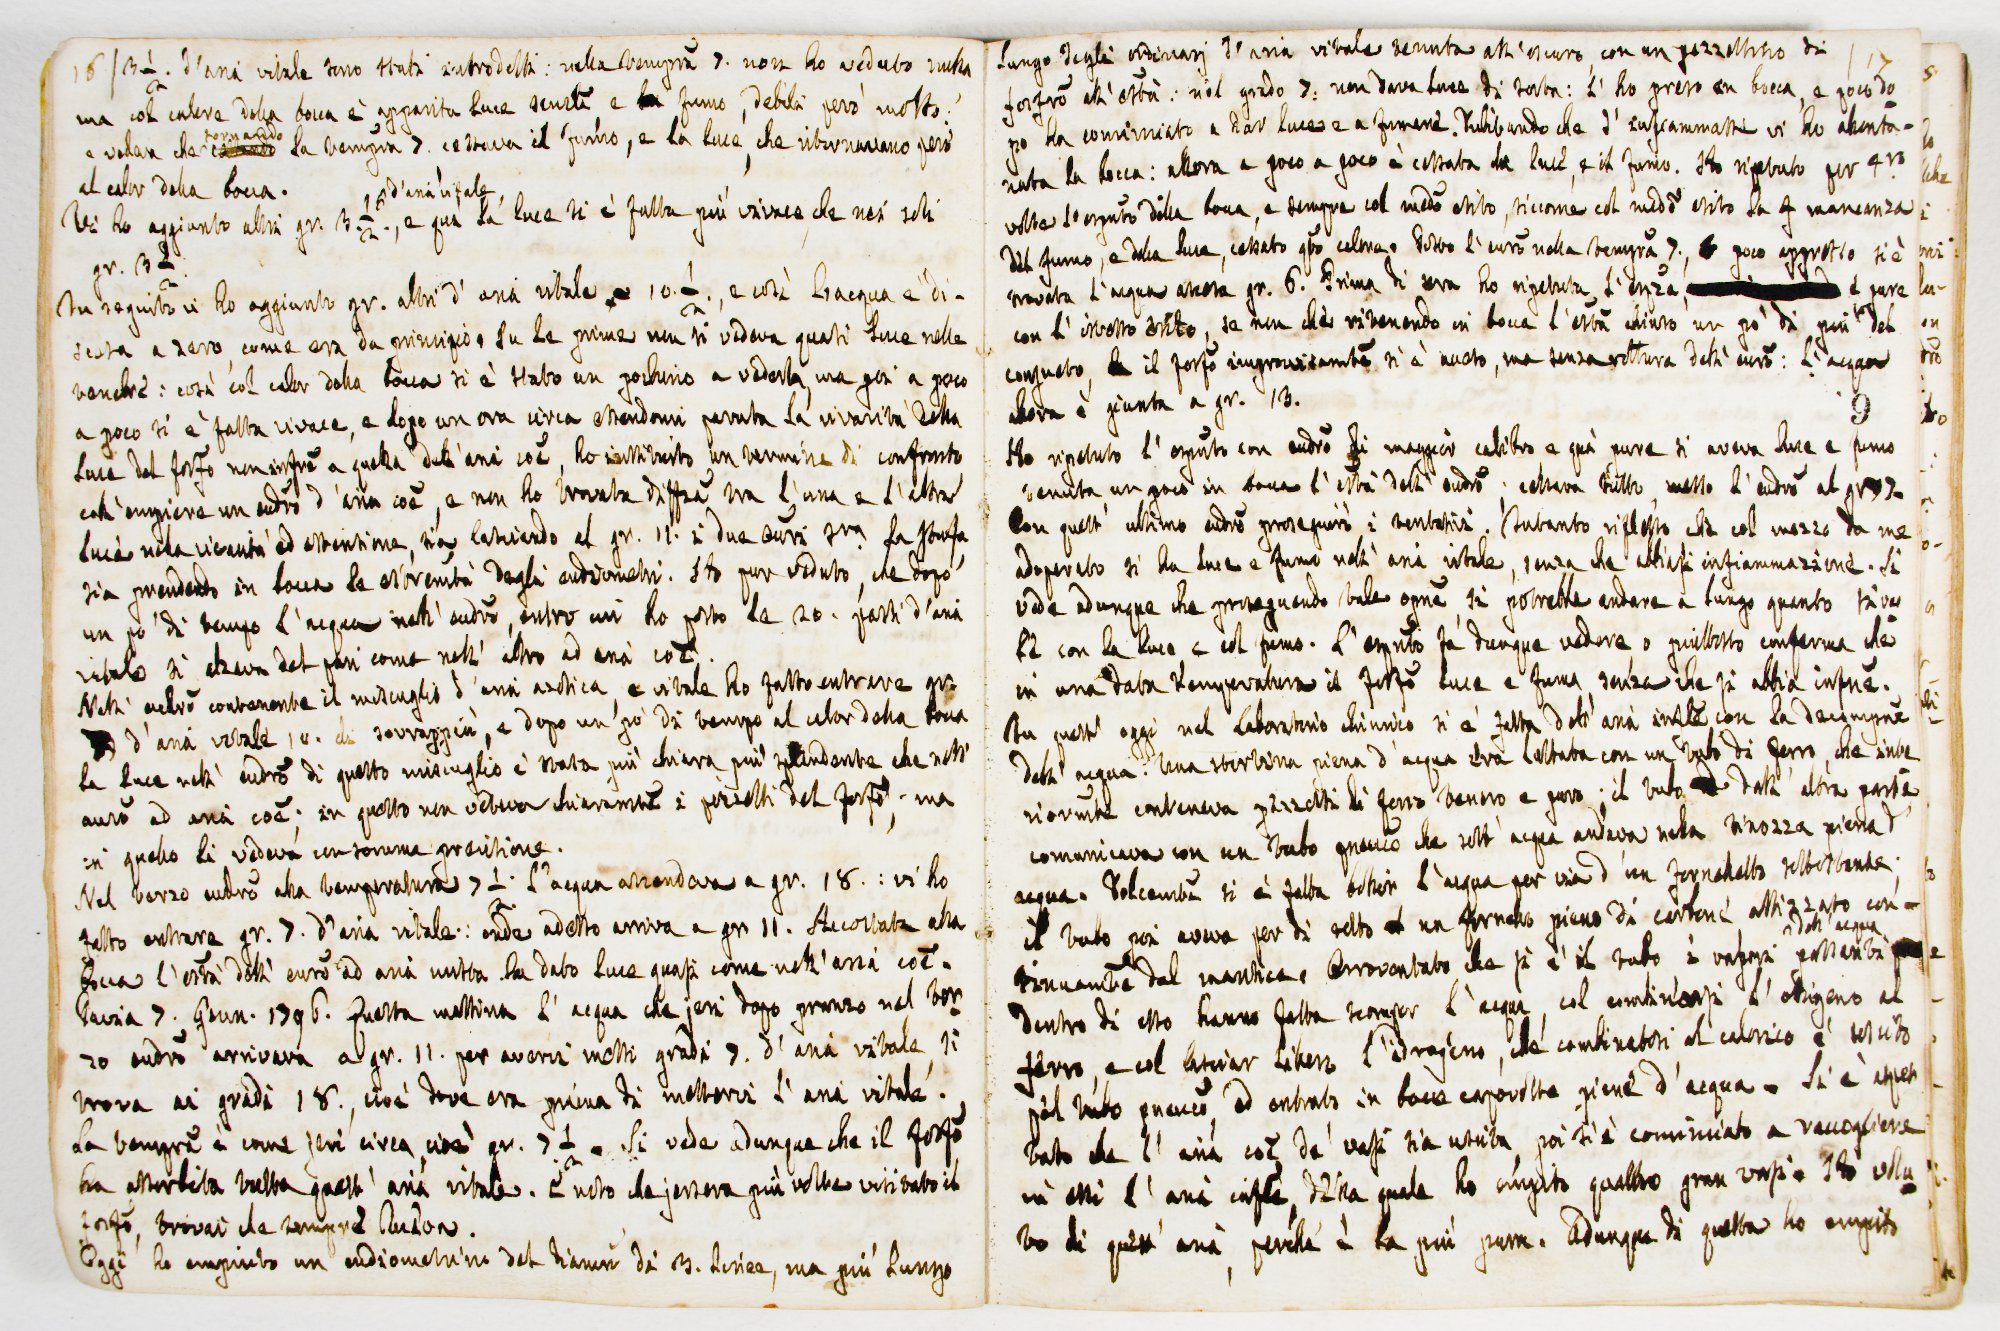 16/3 1/2. d'aria vitale sono stati introdotti: nella tempra 7. non ho veduto nulla
ma col calore della bocca è apparita luce e fumo, debili però molto:
e vedea che tornando la tempra 7. cessava il fumo, e la luce, che ritornavano però
al calor della bocca.
16 d'aria vitale
Vi ho aggiunto altri gr. 3 1/2., e qua la luce si è fatta più vivace, che nei soli
gr. 3 1/2.
In seguito vi ho aggiunto gr. altri d'aria vitale 10. 1/2., e così l'acqua è di-
scesa a zero, come era da principio. Su le prime non si vedeva quasi luce nelle
tenebre: così col calor della bocca si è stato un pochino a vederla, ma poi a poco
a poco si è fatta vivace, e dopo un ora circa essendomi paruta la vivacità della
luce del fosfo non infre a quella dell'aria coe, ho istituito un termine di confronto
coll'empiere un eudro d'aria coe, e non ho trovata diffza tra l'una e l'altra
luce nella vivacità ed estensione, sia lasciando al gr. 11. i due euri la stufa
sia prendendo in bocca le estremità degli eudiometri. Ho pur veduto, che dopo
un po' di tempo l'acqua nell'eudro, entro cui ho posto le 20. parti d'aria
vitale si alzava del pari come nell'altro ad aria coe.
Nell'eudro contenente il miscuglio d'aria azotica, e vitale ho fatto entrare gr.
d'aria vitale 10. di sovrappiù, e dopo un po' di tempo al calor della bocca
la luce nell'eudro di questo miscuglio è stata più chiara più splendente che nell'
euro ad aria coe; in questo non vedeva chiaramte i pezzetti del fosfo, ma
in quello li vedeva con somma precisione.
Nel terzo eudro alla temperatura 7 1/2. l'acqua ascendeva a gr. 18.: vi ho
fatto entrare gr. 7. d'aria vitale: onde adesso arriva a gr. 11. Accostata alla
bocca l'esttà dell'euro ad aria ha dato luce quasi come nell'aria coe.
Pavia 7. Giun. 1796. Questa mattina l'acqua che jeri dopo pranzo nel ter-
zo eudro arrivava a gr. 11. per averci messi gradi 7. d'aria vitale, si
trova ai gradi 18., cioè dove era prima di mettervi l'aria vitale.
La tempra è come jeri circa, cioè gr. 7 1/2. Si vede adunque che il fosfo
ha assorbita tutta quest'aria vitale. È noto che jersera più volte visitato il
fosfo, trovai che sempre luceva.
Oggi ho empiuto un eudiometrino del diamro di 3. linee, ma più lungo
lungo degli ordinarj d'aria vitale tenuta all'oscuro, con un pezzettino di /17
fosfro all'esttà: nel grado 7. non dava luce di sorta: l'ho preso in bocca, e poco do
po ha cominciato a dar luce e a fumare. Dubitando che s'infiammasse vi ho allonta-
nata la bocca: allora a poco a poco è cessata la luce, e il fumo. Ho ripetuto per 4.
volte l'esputo della bocca, e sempre col medo esito, siccome col medo esito la mancanza
del fumo, e della luce, cessato qto calore. Posto l'euro nella tempra 7., poco appresso si è
trovata l'acqua ascesa gr. 6. Prima di sera ho ripetuta l'espza, è pure
con l'istesso esito, se non che ritenendo in bocca l'esttà chiuso un po' di più del
consueto, il fosfo improvisamte si è acceso, ma senza rottura dell'euro: l'acqua
allora è giunta a gr. 13.
9
Ho ripetuto l'esputo con eudro di maggior calibro e quà pure si aveva luce e fumo
tenuta un poco in bocca l'esttà dell'eudro; cessava tutto, messo l'eudro al gr. 7.
Con quest'ultimo eudro proseguirò i tentativi. Intanto rifletto che col mezzo da me
adoperato si ha luce e fumo nell'aria vitale, senza che abbiasi infiammazione. Si
vede adunque che proseguendo tale opne si potrebbe andare a lungo quanto si vo-
le con la luce e col fumo. L'esputo fa dunque vedere o piuttosto conferma che
in una data temperatura il fosfo luce e fuma, senza che si abbia infne.
In quest'oggi nel Laboratorio chimico si è fatta dell'aria infle con la decompne
dell'acqua. Una stortina piena d'acqua era lottata con un tubo di ferro, che inte
riormte conteneva pezzetti di ferro tenero e puro; il tubo dall'altra parte
comunicava con un tubo pneuco che sott'acqua andava nella tinozza piena d'
acqua. Dolcemte si è fatta bollir l'acqua per via d'un fornelletto sottostante.
Il tubo poi aveva per di sotto un fornello pieno di carboni attizzato con-
dell'acqua
tinuamte dal mantice. Arroventato che si è il tubo i vapori passanti
dentro di esso hanno fatta scomper l'acqua, col combinarsi l'ossigeno al
ferro, e col lasciar libero l'idrogeno, che combinatosi al calorico è uscito
pel tubo pneuco, ed entrato in bocce capovolte piene d'acqua. Si è aspet
tato che l'aria coe de' vasi sia uscita, poi si è cominciato a raccogliere
in essi l'aria infle, della quale ho empito quattro gran vasi. Ho volu
to di quest'aria, perché è la più pura. Adunque di questa ho empito